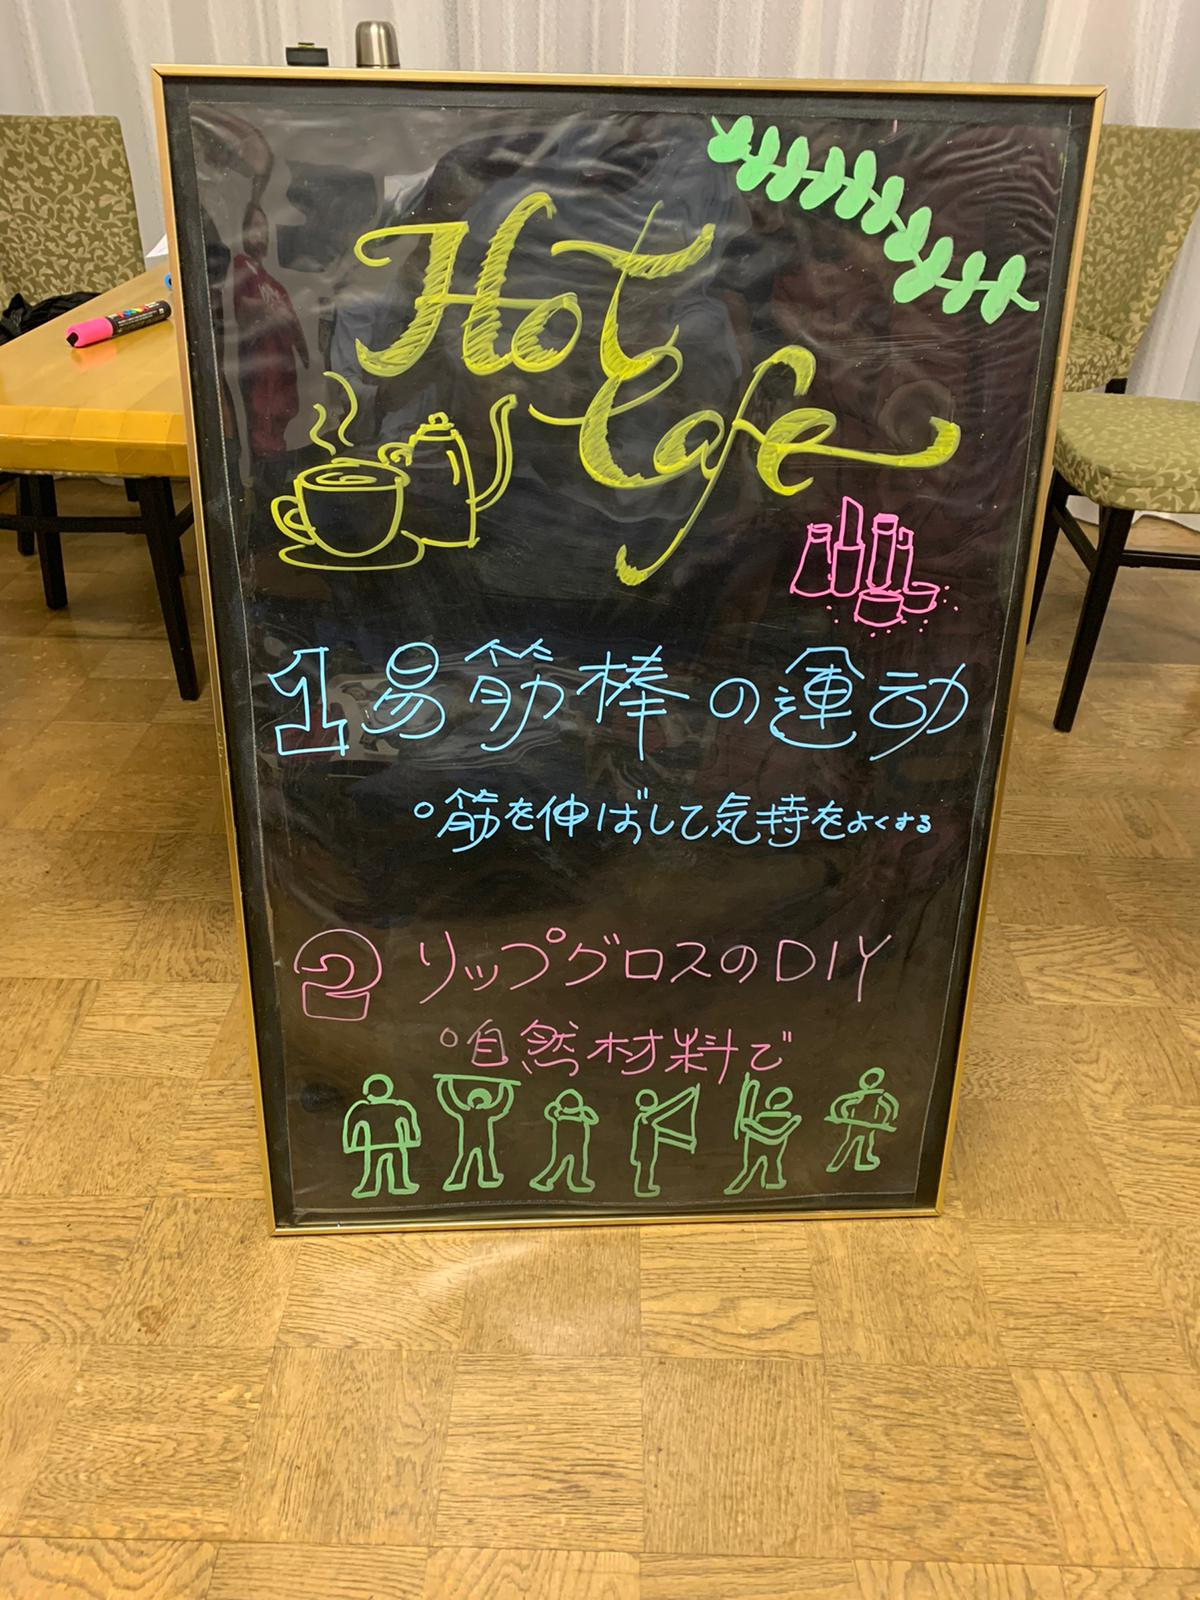 Hot
Cafe
1 易筋棒の運动
筋を伸ばして気持をよくする
2 リップグロスのDIY
自然材料で